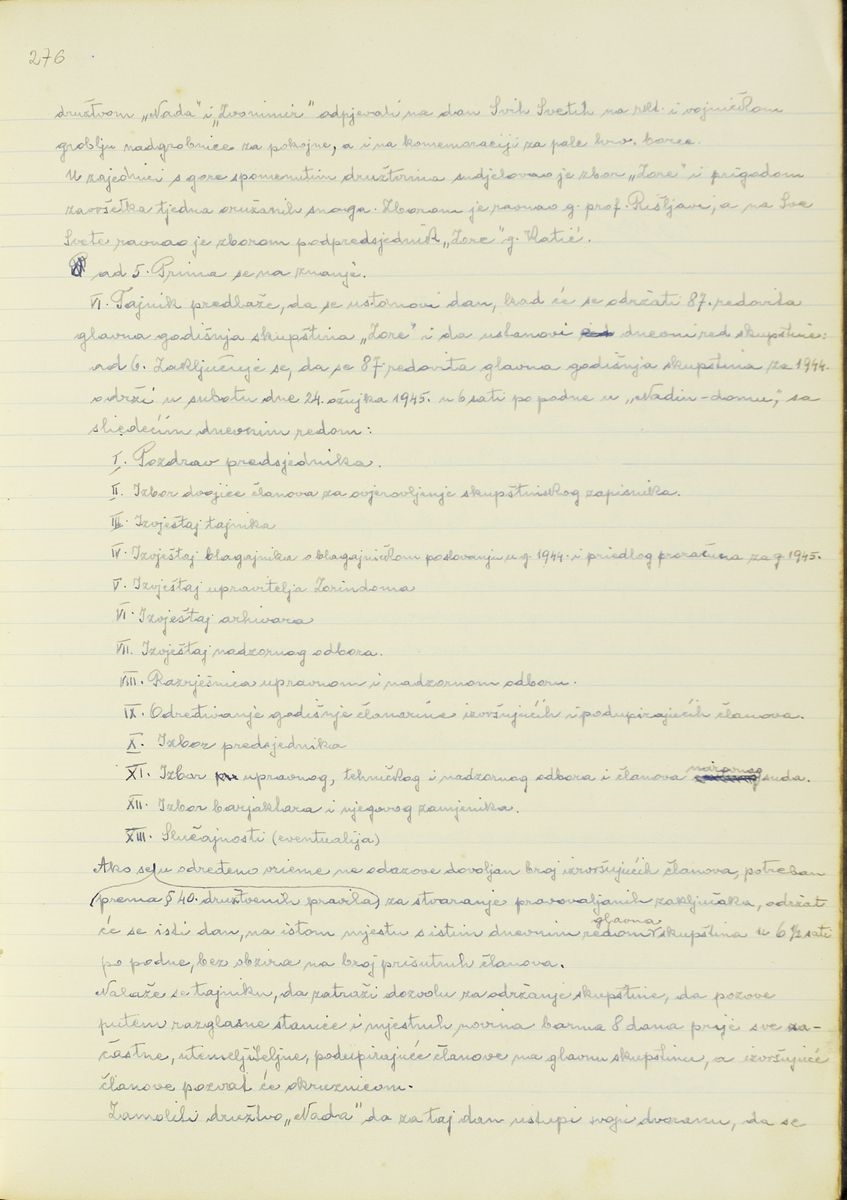 276
družtvom „Nada" i „Zvonimir" odpjevali na dan Svih Svetih na rkt. i vojničkom
groblju nadgrobnice za pokojne, a i na komemoraciji za pale hrv. borce.
U zajednici s gore spomenutim družtvima sudjelovao je zbor „Zore" i prigodom
završetka tjedna oružanih snaga. Zborom je ravnao g. prof. Rišljavi, a na Sve
Svete ravnao je zborom podpredsjednik „Zore" g. Katić.
ad 5. Prima se na znanje.
VI. Tajnik predlaže, da se ustanovi dan, kad će se održati 87. redovita
glavna godišnja skupština „Zore" i da ustanovi dnevni red skupštine:
ad 6. Zaključuje se, da se 87 redovita glavna godišnja skupština za 1944.
održi u subotu dne 24. ožujka 1945. u 6 sati po podne u „Nadin-domu", sa
sliedećim dnevnim redom:
I. Pozdrav predsjednika.
II. Izbor dvojice članova za ovjerovljenje skupštinskog zapisnika.
III. Izvještaj tajnika
IV. Izvještaj blagajnika o blagajničkom poslovanju u g. 1944. i priedlog proračuna za g 1945.
V. Izvještaj upravitelja Zorindoma
VI. Izvještaj arhivara
VII. Izvještaj nadzornog odbora.
VIII. Razrješnica upravnom i nadzornom odboru.
IX. Određivanje godišnje članarine izvršujućih i podupirajućih članova.
X. Izbor predsjednika
XI. Izbor upravnog, tehničkog i nadzornog odbora i članova suda.
XII. Izbor barjaktara i njegovog zamjenika.
XIII. Slučajnosti (eventualija)
Ako se u određeno vrieme ne odazove dovoljan broj izvršujućih članova, potreban
(prema § 40. družtvenih pravila) za stvaranje pravovaljanih zaključaka, održat
će se isti dan, na istom mjestu s istim dnevnim redom glavna skupština u 6 ½ sati
po podne, bez obzira na broj prisutnih članova.
Nalaže se tajniku, da zatraži dozvolu za održanje skupštine, da pozove
putem razglasne stanice i mjestnih novina barma 8 dana prije sve za-
častne, utemeljiteljne, podupirajuće članove na glavnu skupštinu, a izvršujuće
članove pozvat će okružnicom.
Zamoliti družtvo „Nada" da za taj dan ustupi svoju dvoranu, da se